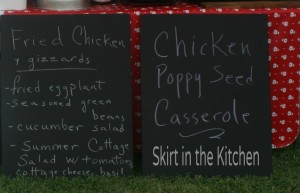 Fried Chicken
+ gizzards
-fried eggplant
-seasoned green
beans
-cucumber salad
- Summer Cottage
Salad w/tomatoes,
cottage cheese, basil
Chicken
Poppy Seed
Casserole
Skirt in the Kitchen